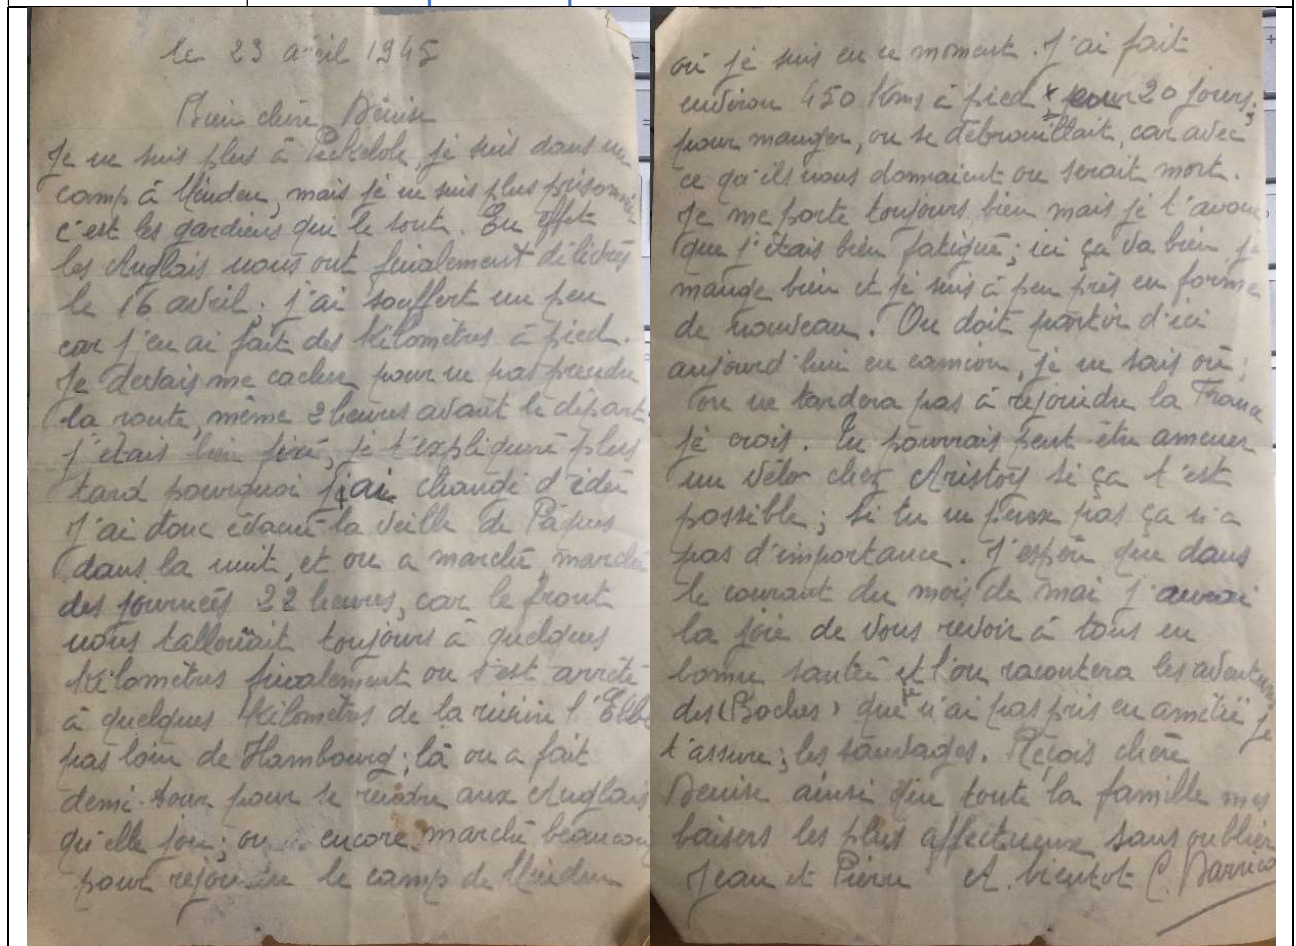 le 23 avril 1945
Bien chère Denise
Je ne suis plus à Peckeloh, je suis dans un
camp à Minden, mais je ne suis plus prisonnier
c'est les gardiens qui le sont. En effet
les Anglais nous ont finalement délivrés
le 16 avril ; j'ai souffert un peu
car j'en ai fait des kilomètres à pied.
Je devais me cacher pour ne pas prendre
la route, même 2 heures avant le départ
j'étais bien fixé, je t'expliquerai plus
tard pourquoi j'ai changé d'idée
J'ai donc évacué la veille de Pâques
dans la nuit, et on a marché, marché
des journées 22 heures, car le front
nous tallonait toujours à quelques
kilomètres finalement on s'est arrêté
à quelques kilomètres de la rivière l'Elbe
pas loin de Hambourg ; là on a fait
demi-tour pour se rendre aux Anglais
qu'elle joie ; on encore marché beaucoup
pour rejoindre le camp de Minden
où je suis en ce moment. J'ai fait
environ 450 kms à pied x pour 20 jours ;
pour manger, on se débrouillait, car avec
ce qu'ils nous donnaient on serait mort.
Je me porte toujours bien mais je t'avoue
que j'étais bien fatigué ; ici ça va bien je
mange bien et je suis à peu près en forme
de nouveau. On doit partir d'ici
aujourd'hui en camion, je ne sais où ;
on ne tardera pas à rejoindre la France
je crois. Tu pourrais peut-être amener
un vélo chez Aristoy si ça t'est
possible ; si tu ne peux pas ça n'a
pas d'importance. J'espère que dans
le courant du mois de mai j'aurai
la joie de vous revoir à tous en
bonne santée et l'on racontera les aventures
des (Boches) que n'ai pas pris en amitié je
t'assure ; les sauvages. Reçois chère
Denise ainsi que toute la famille mes
baisers les plus affectueux sans oublier
Jean et Pierre A bientot C.